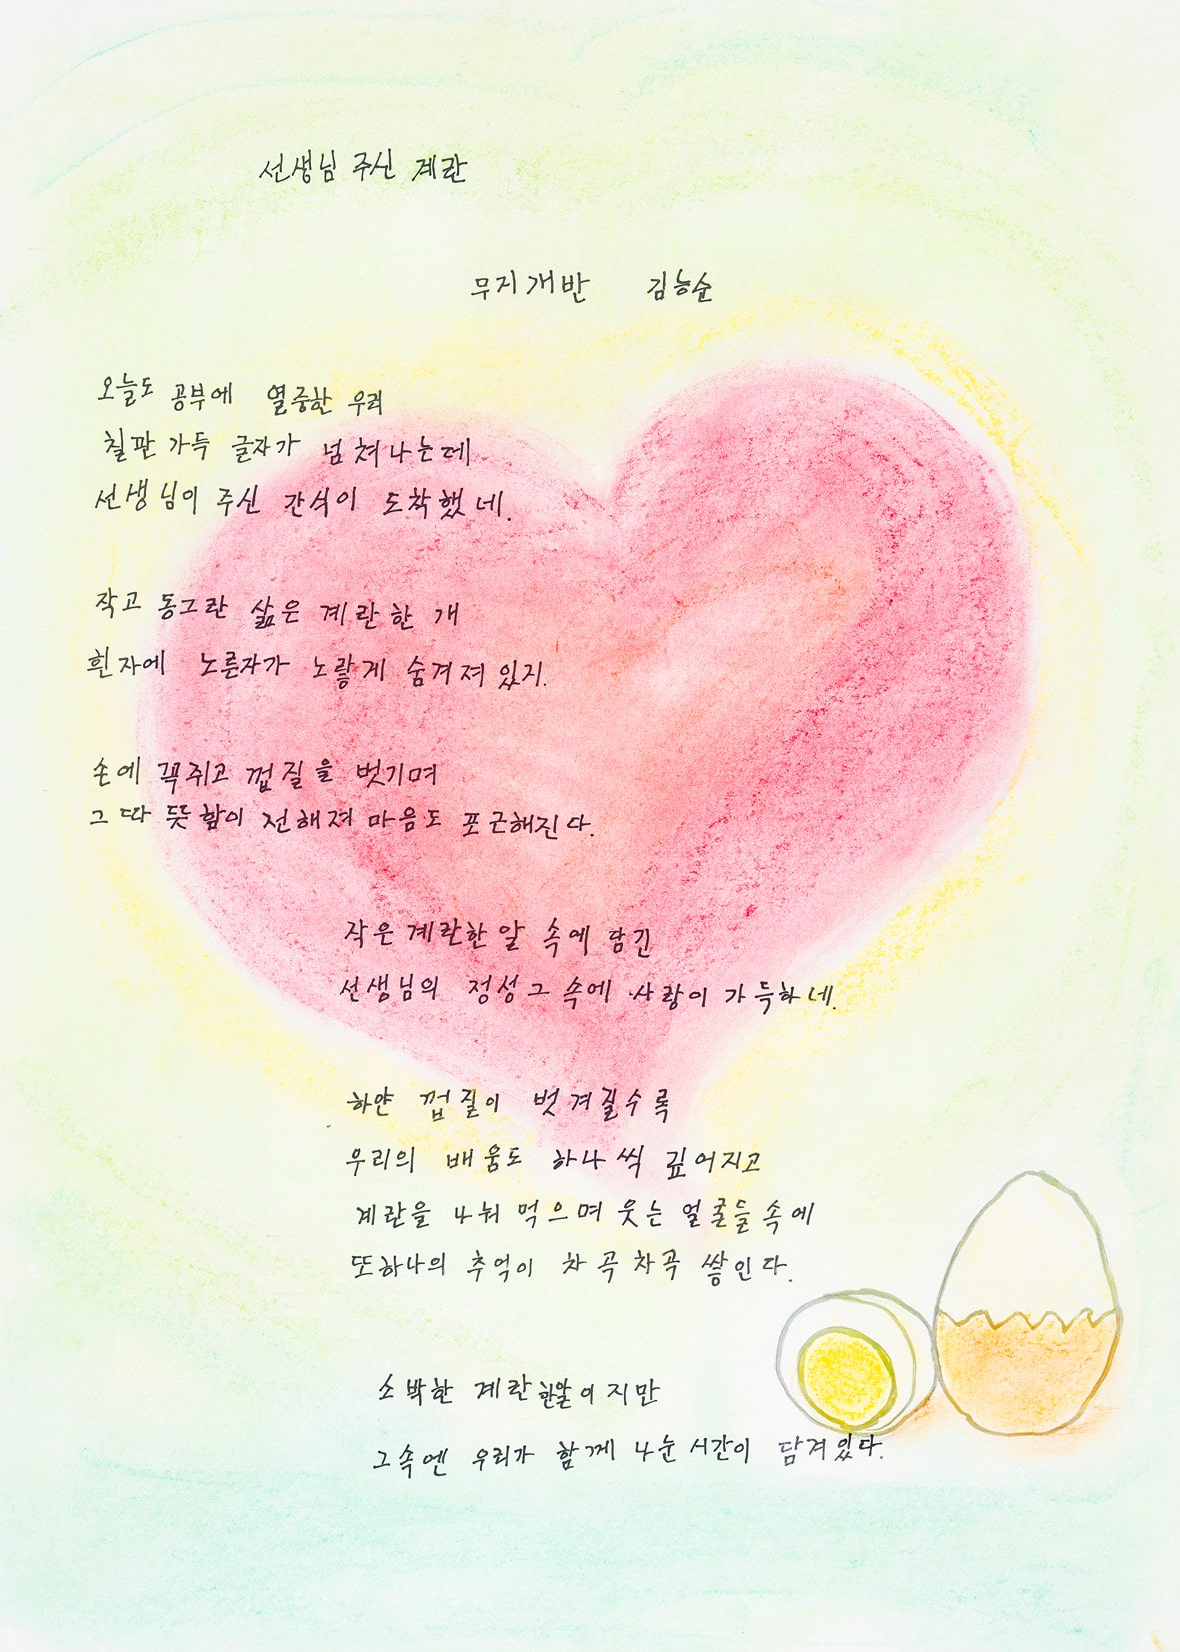 선생님 주신 계란
무지개반 김능순
오늘도 공부에 열중한 우리
칠판 가득 글자가 넘쳐나는데
선생님이 주신 간식이 도착했네.
작고 동그란 삶은 계란한 개
흰자에 노른자가 노랗게 숨겨져 있지.
손에 꼭쥐고 껍질을 벗기며
그 따뜻함이 전해져 마음도 포근해진다.
작은 계란한 알 속에 담긴
선생님의 정성 그 속에 사랑이 가득하네.
하얀 껍질이 벗겨질수록
우리의 배움도 하나씩 깊어지고
계란을 나눠 먹으며 웃는 얼굴들 속에
또하나의 추억이 차곡차곡 쌓인다.
소박한 계란한알이지만
그속엔 우리가 함께 나눈 시간이 담겨있다.